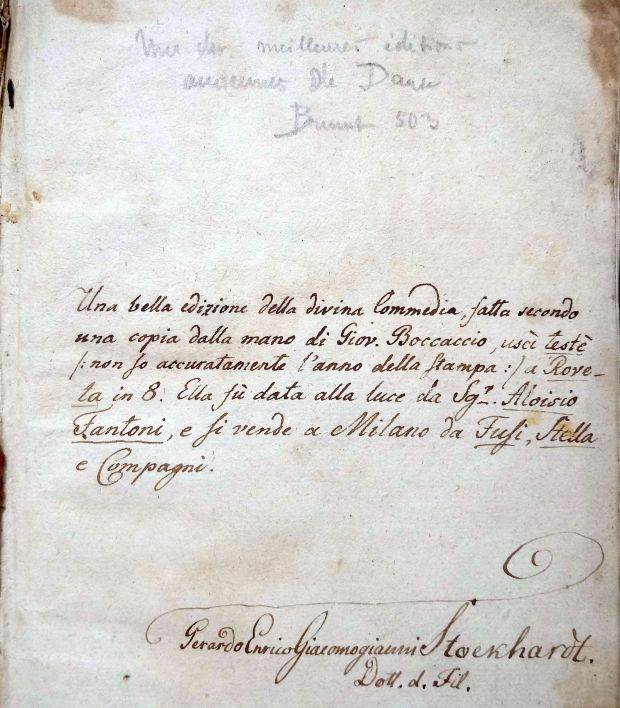 Une des meilleures éditions
anciennes de Dante
Brunet 503
Una bella edizione della divina Commedia, fatta secondo
una copia dalla mano di Giov. Boccaccio, uscì testè
/: non so accuratamente l'anno della stampa :/ a Rove-
ta in 8. Ella fù data alla luce da Sgr. Aloisio
Fantoni, e si vende a Milano da Fusi, Stella
e Compagni.
Gerardo Enrico Giacomogianni Stoekhardt.
Dott. d. Fil.